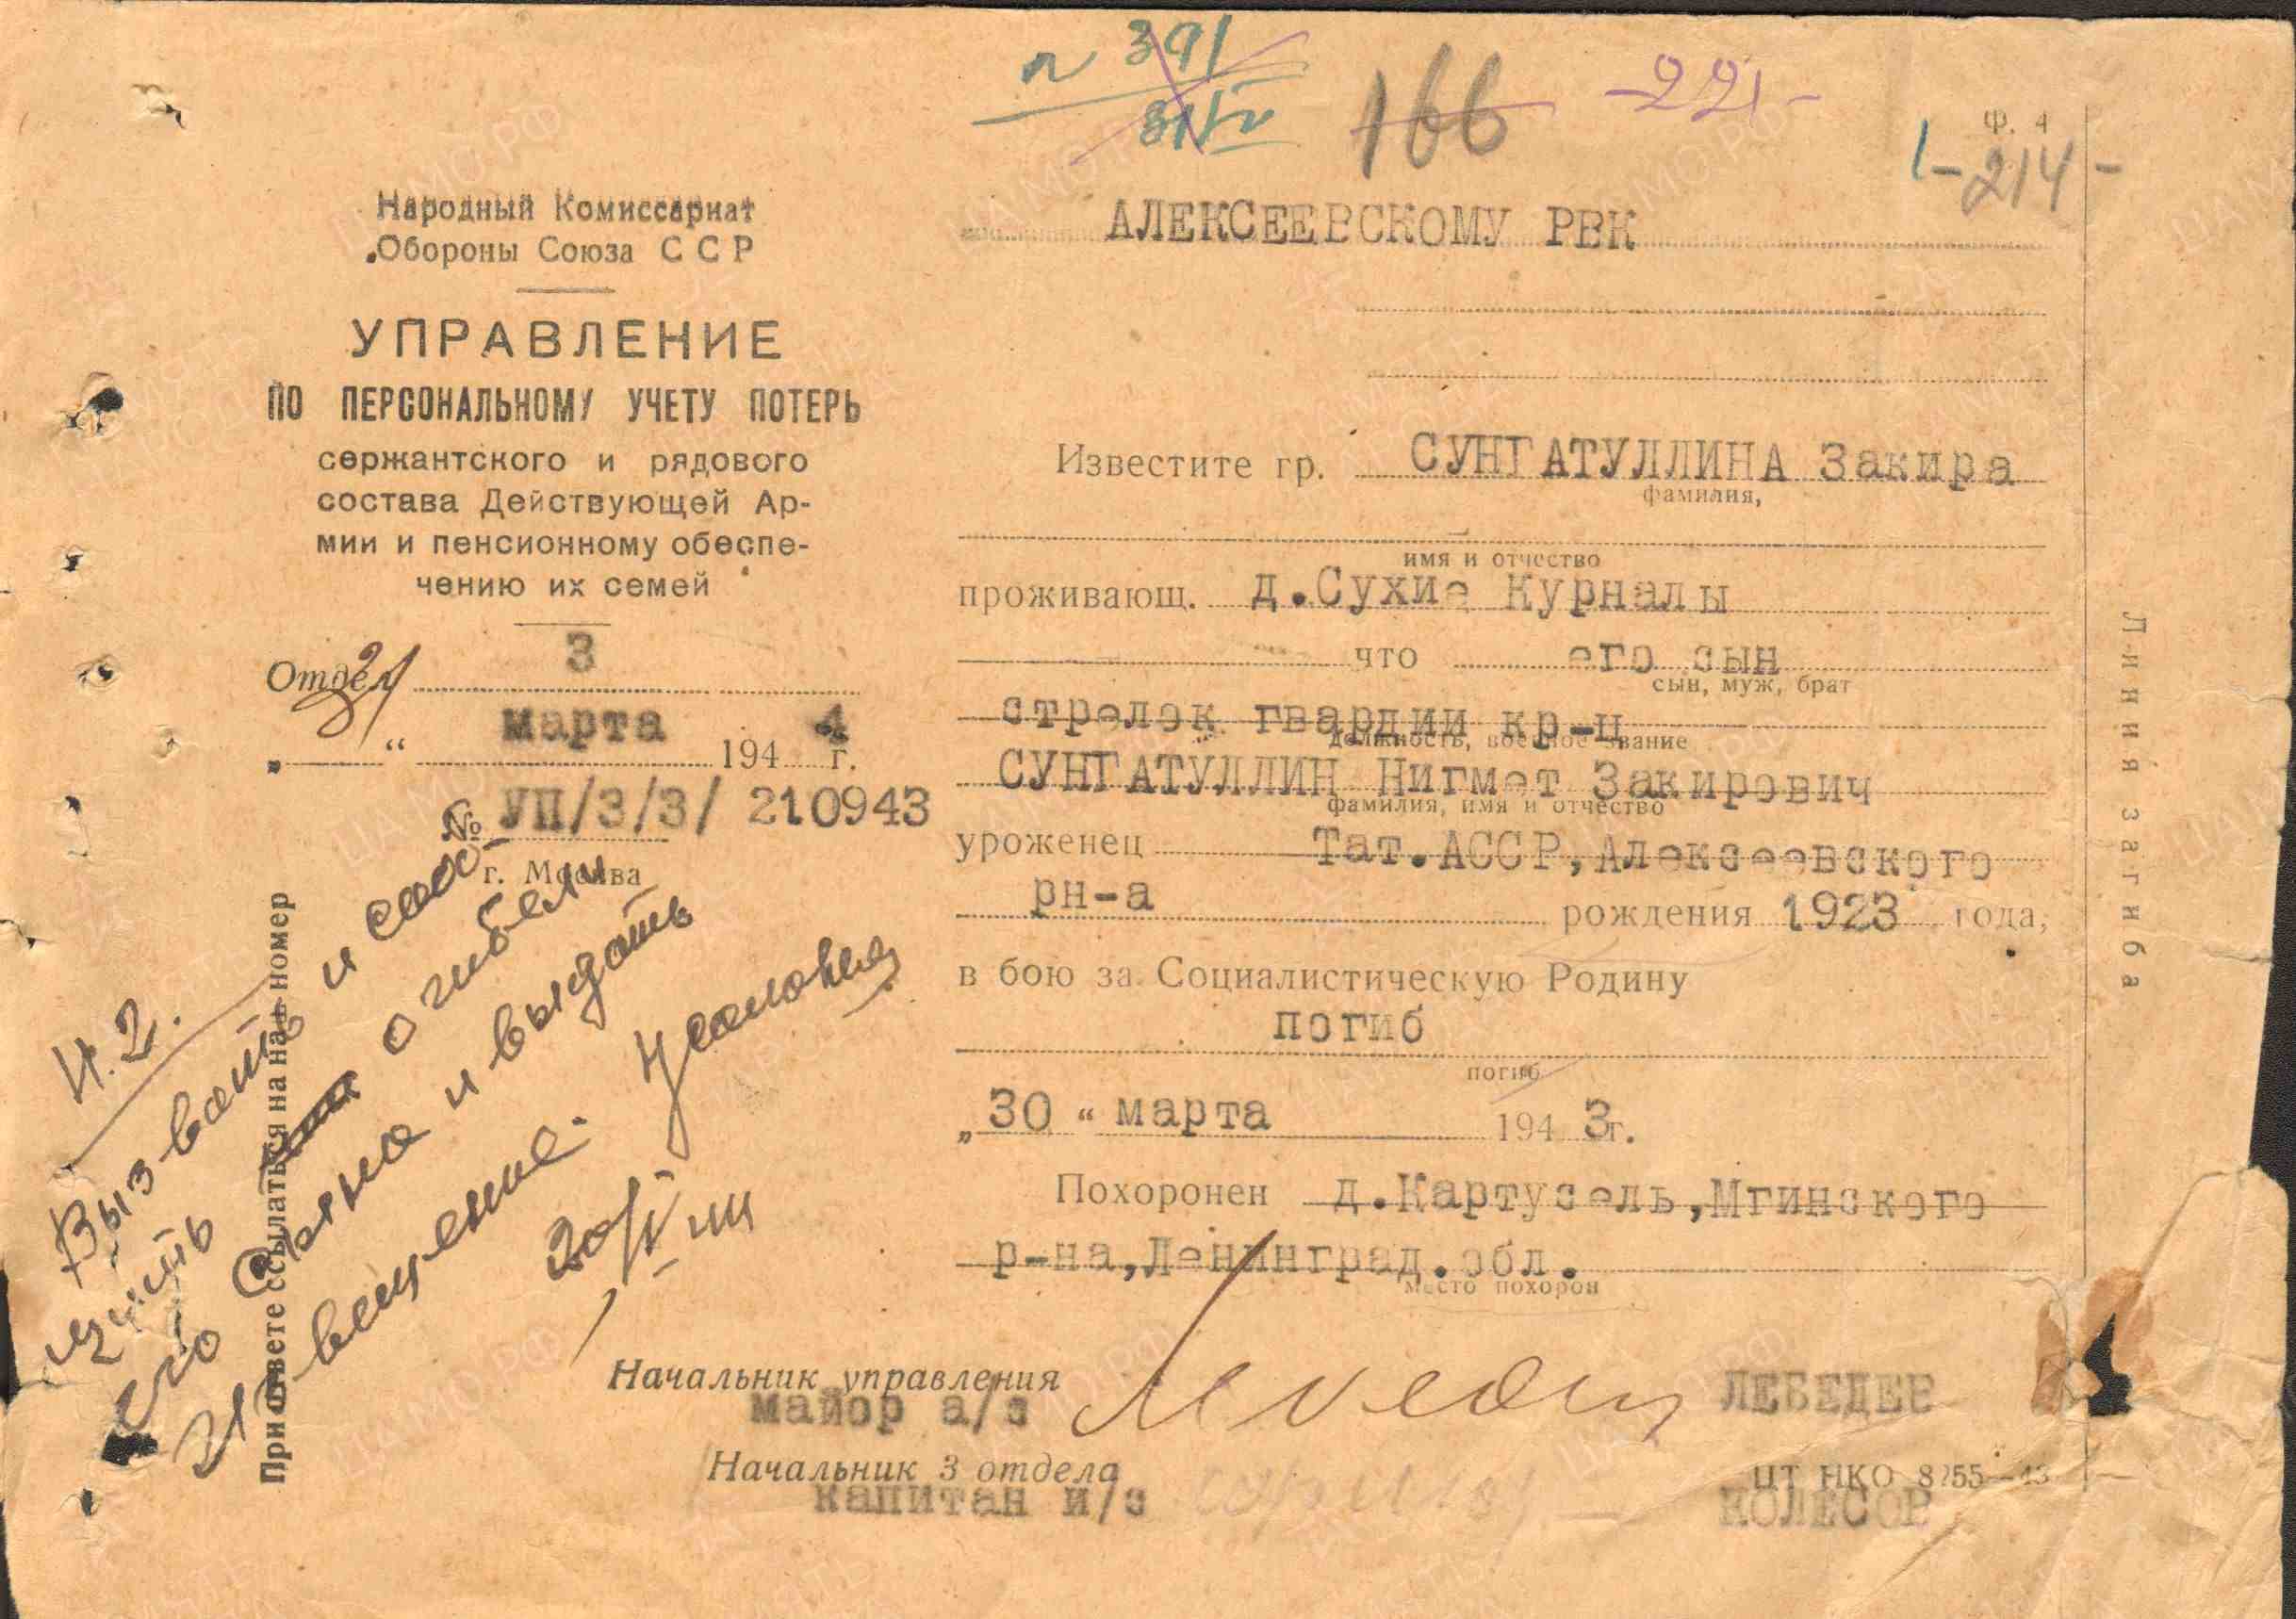 391
166
-221-
Ф. 4
-214-
Народный Комиссариат
Обороны Союза ССР
УПРАВЛЕНИЕ
ПО ПЕРСОНАЛЬНОМУ УЧЕТУ ПОТЕРЬ
сержантского и рядового
состава Действующей Ар-
мии и пенсионному обеспе-
чению их семей
Отдел 3
31
„ “ марта 1944 г.
№ УП/3/3/ 210943
г. Москва
При ответе ссылаться на наш номер
ч. 2.
Вызвать и сооб-
щить о гибели
его сына и выдать
извещение.
20/IV
АЛЕКСЕЕВСКОМУ РВК
Известите гр. СУНГАТУЛЛИНА Закира
фамилия,
имя и отчество
проживающ. д.Сухие Курналы
что его сын
сын, муж, брат
стрелок гвардии кр-ц
должность, военное звание
СУНГАТУЛЛИН Нигмет Закирович
фамилия, имя и отчество
уроженец Тат.АССР,Алексеевского
рн-а рождения 1923 года,
в бою за Социалистическую Родину
погиб
погиб
„30“ марта 1943г.
Похоронен д.Картусель,Мгинского
р-на,Ленинград.обл.
место похорон
Начальник управления
майор а/с ЛЕБЕДЕВ
Начальник 3 отдела
капитан и/с КОЛЕСОВ
ЦТ НКО 8255—43
Линия загиба
ЦАМО.РФ